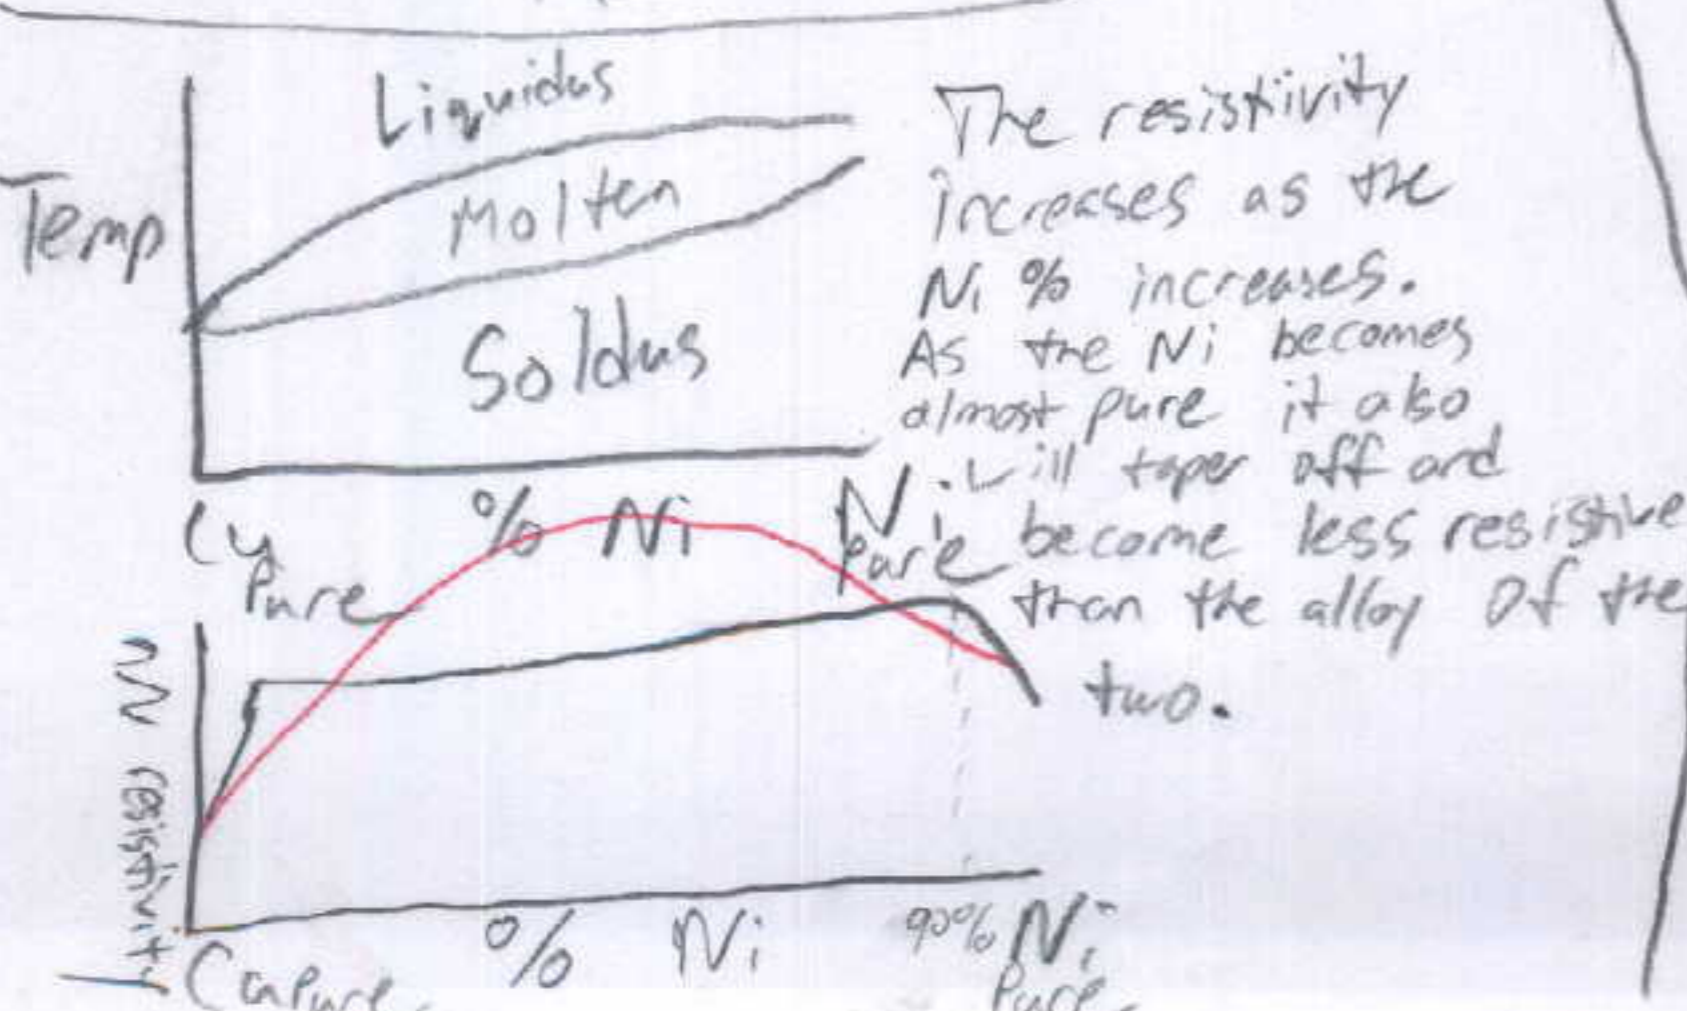 Liquidus
Molten
Temp
Soldus
Cu
Pure
% Ni
Ni
Pure
The resistivity
increases as the
Ni % increases.
As the Ni becomes
almost pure it also
will taper off and
become less resistive
than the alloy of the
two.
resistivity
Cu Pure
% Ni
90%
Ni
Pure